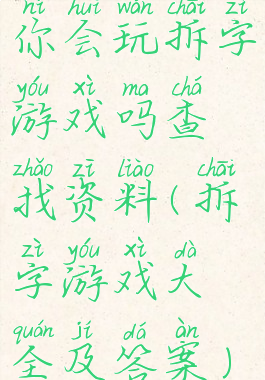 nǐ huì wán chāi zì
你会玩拆字
yóu xì ma chá
游戏吗查
zhǎo zī liào chāi
找资料(拆
zì yóu xì dà
字游戏大
quán jí dá àn
全及答案)